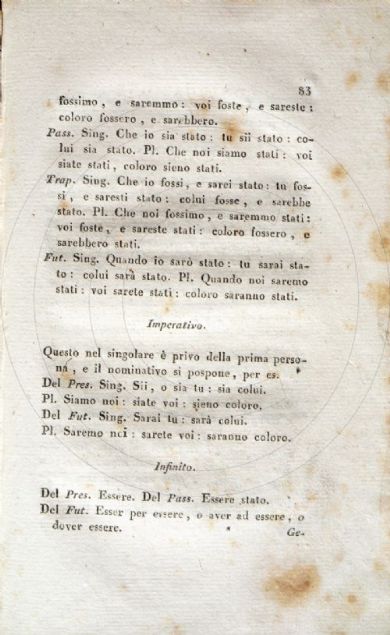 83
fossimo, e saremmo: voi foste, e sareste:
coloro fossero, e sarebbero.
Pass. Sing. Che io sia stato: tu sii stato: co-
lui sia stato. Pl. Che noi siamo stati: voi
siate stati, coloro sieno stati.
Trap. Sing. Che io fossi, e sarei stato: tu fos-
si, e saresti stato: colui fosse, e sarebbe
stato. Pl. Che noi fossimo, e saremmo stati:
voi foste, e sareste stati: coloro fossero, e
sarebbero stati.
Fut. Sing. Quando io sarò stato: tu sarai sta-
to: colui sarà stato. Pl. Quando noi saremo
stati: voi sarete stati: coloro saranno stati.
Imperativo.
Questo nel singolare è privo della prima perso-
na, e il nominativo si pospone, per es.
Del Pres. Sing. Sii, o sia tu: sia colui.
Pl. Siamo noi: siate voi: sieno coloro.
Del Fut. Sing. Sarai tu: sarà colui.
Pl. Saremo noi: sarete voi: saranno coloro.
Infinito.
Del Pres. Essere. Del Pass. Essere stato.
Del Fut. Esser per essere, o aver ad essere, o
dover essere.
Ge-